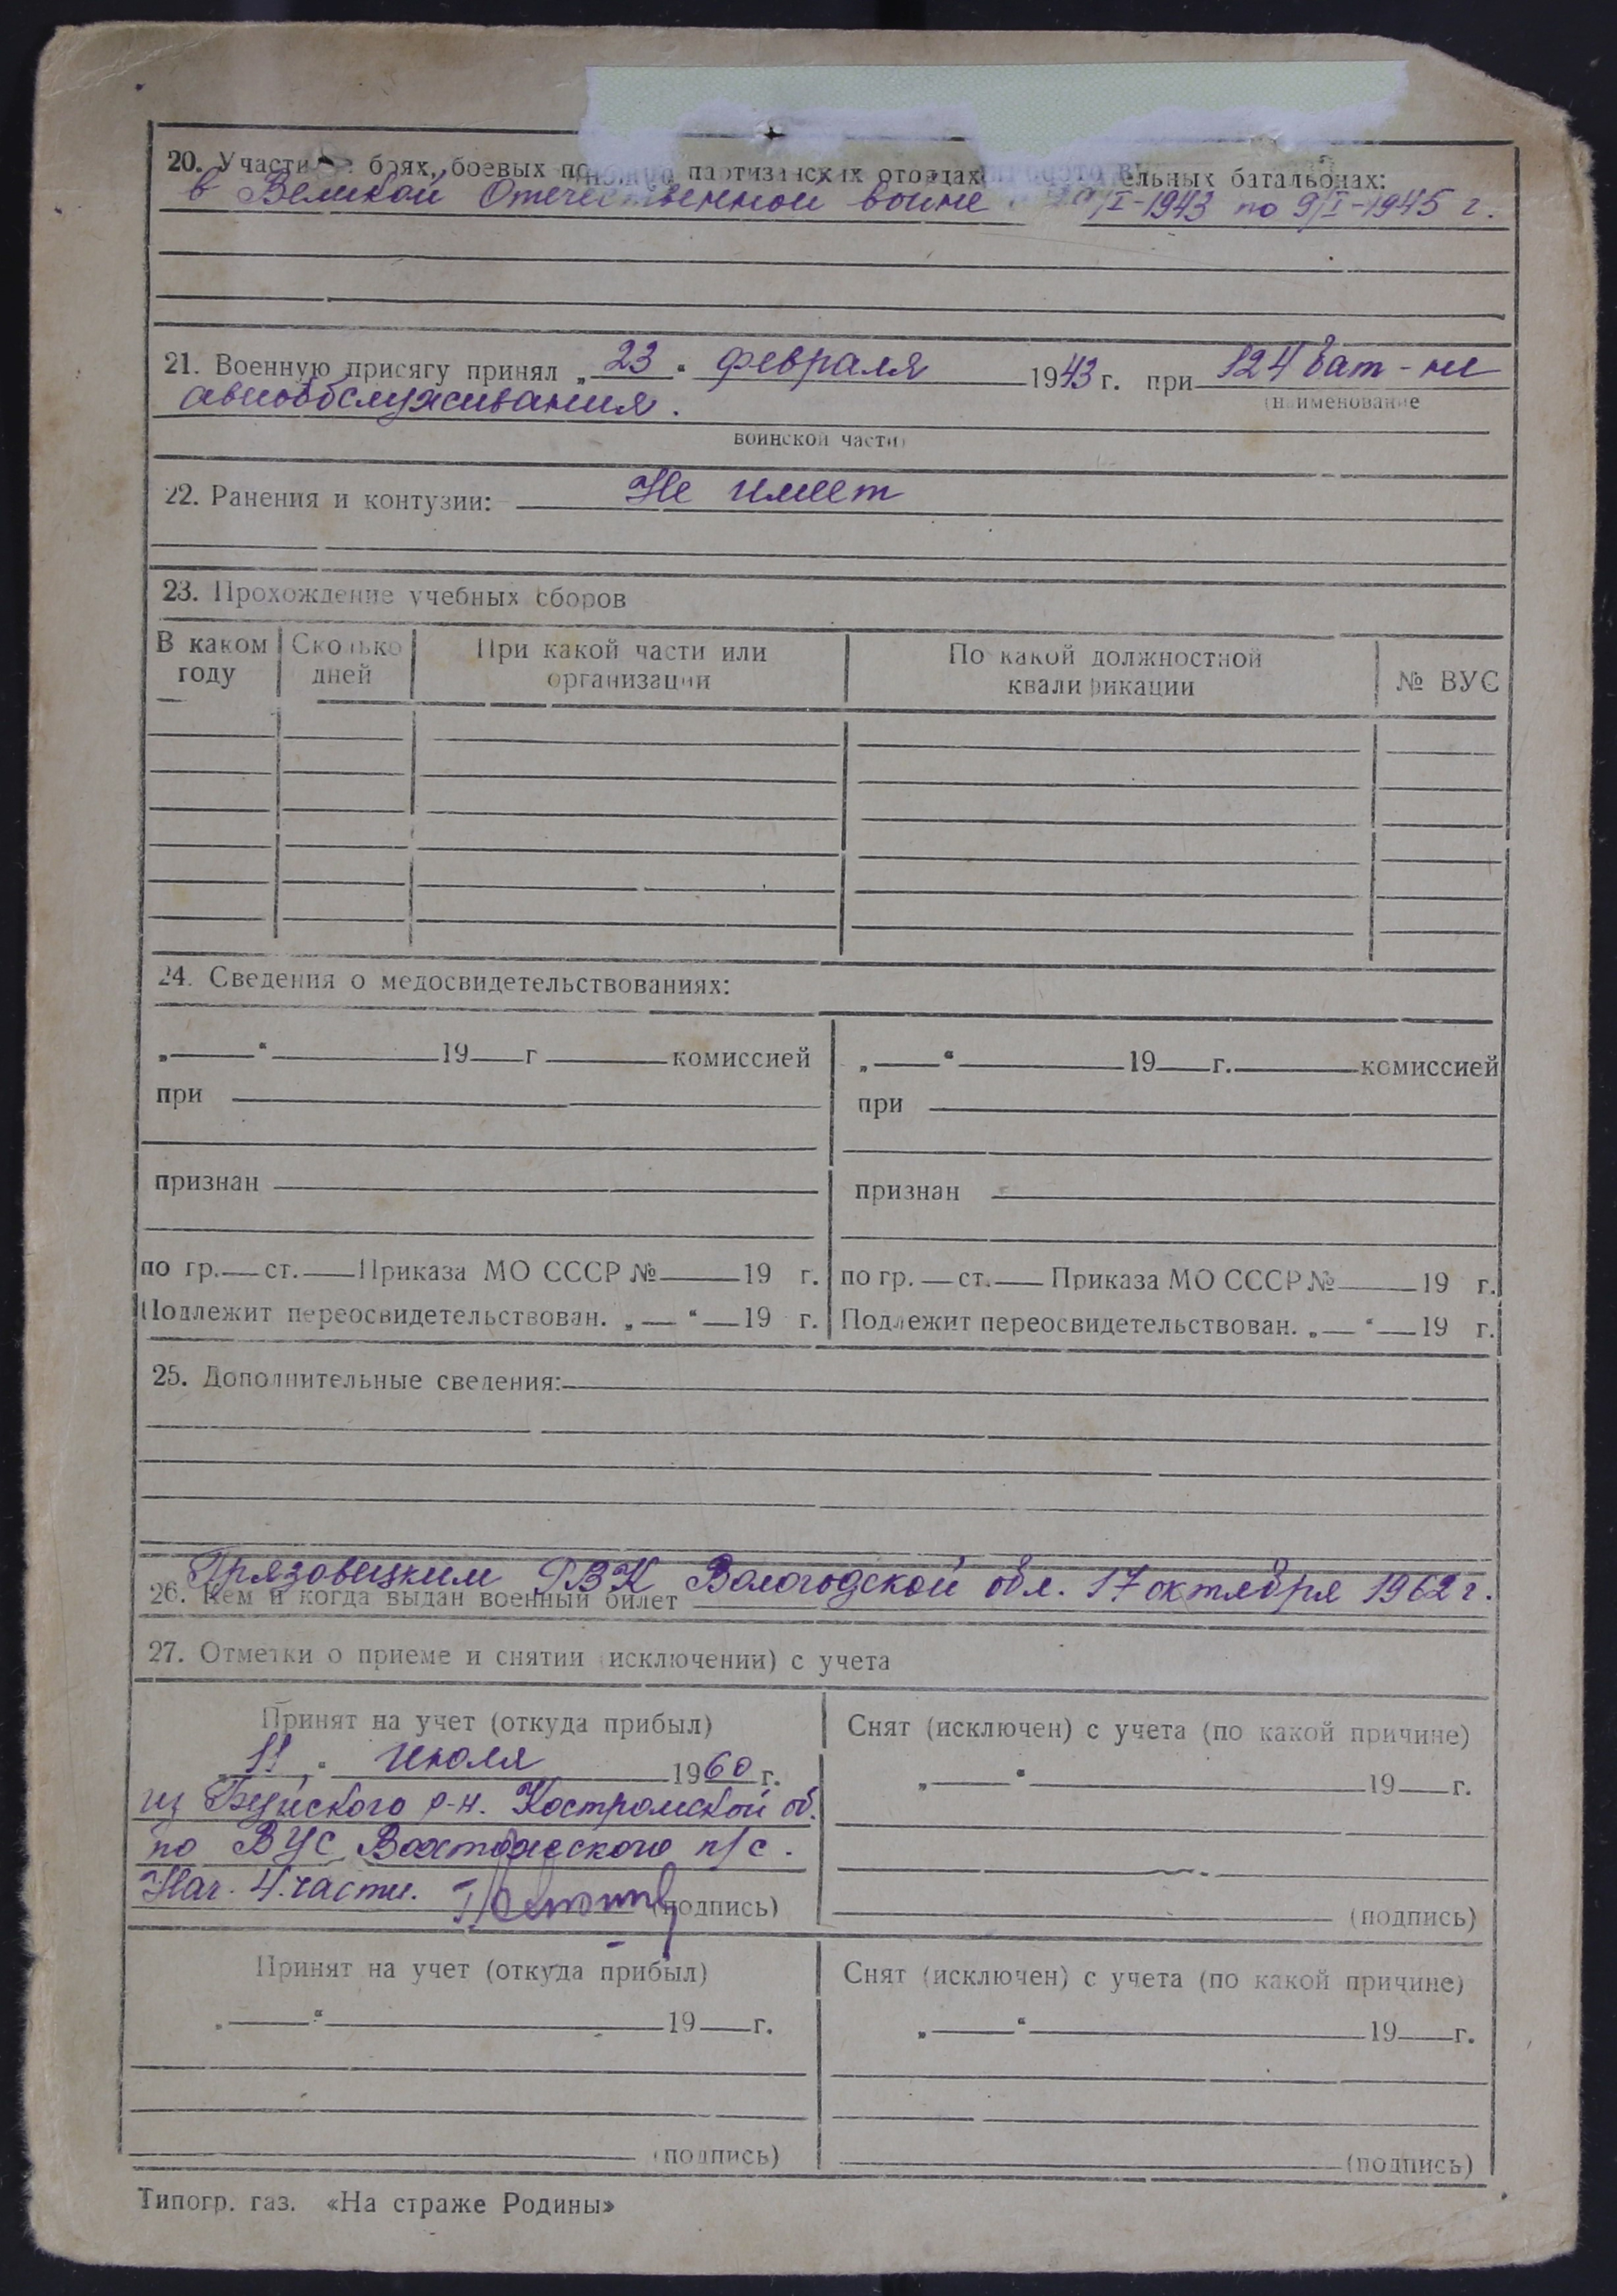 20. Участие боях, боевых партизанских отрядах ельных батальонах:
в Великой Отечественной войне /I-1943 по 9/I-1945 г.
21. Военную присягу принял „ 23 “ февраля 1943 г. при 124 бат-не
(наименование
авиообслуживания.
воинской части)
22. Ранения и контузии: Не имеет
23. Прохождение учебных сборов
В каком году Сколько дней При какой части или организации По какой должностной квалификации № ВУС
24. Сведения о медосвидетельствованиях:
„ “ 19 г комиссией „ “ 19 г. комиссией
при при
признан признан
по гр. ст. Приказа МО СССР № 19 г. по гр. ст. Приказа МО СССР № 19 г.
Подлежит переосвидетельствован. „ “ 19 г. Подлежит переосвидетельствован. „ “ 19 г.
25. Дополнительные сведения:
Грязовецким РВК Вологодской обл. 17 октября 1962 г.
26. Кем и когда выдан военный билет
27. Отметки о приеме и снятии (исключении) с учета
Принят на учет (откуда прибыл) Снят (исключен) с учета (по какой причине)
11 “ июля 1960 г. „ “ 19 г.
из Буйского р-н. Костромской об.
по ВУС п/с.
Нач. 4. части. (подпись) (подпись)
Принят на учет (откуда прибыл) Снят (исключен) с учета (по какой причине)
„ “ 19 г. „ “ 19 г.
(подпись) (подпись)
Типогр. газ. «На страже Родины»